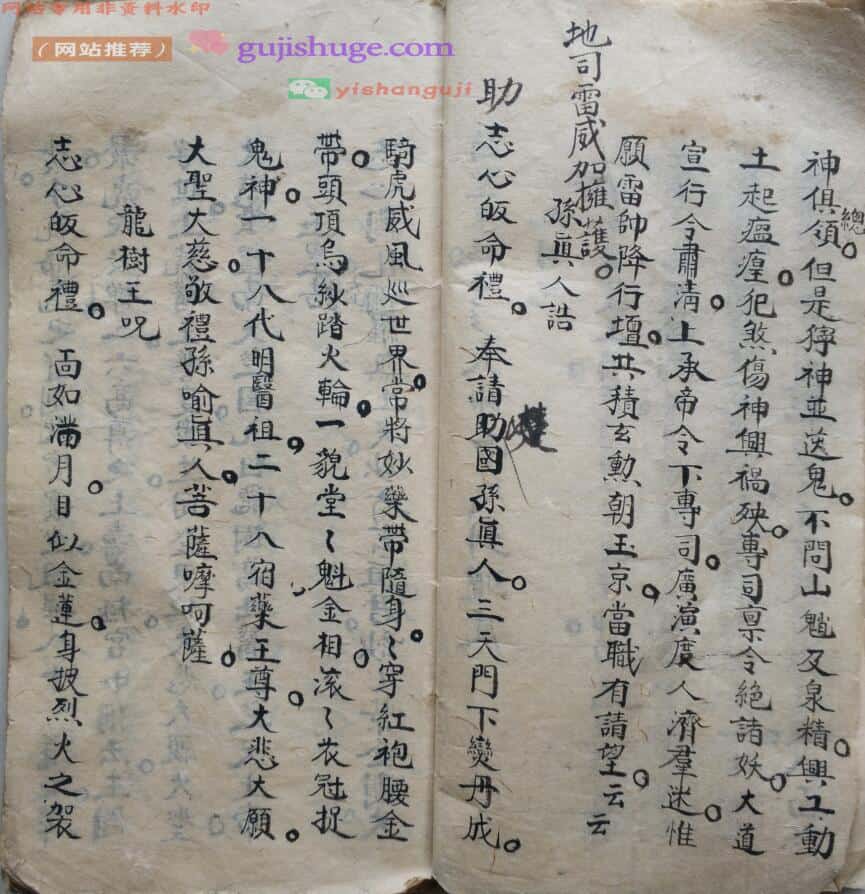 网站专用非资料水印
(网站推荐)
gujishuge.com
yishanguji
神俱領。但是獰神並送鬼。不問山魈及泉精。興工動
總
土起瘟瘟犯煞傷神興禍殃。專司禀令絕諸妖。大道
宣行令肅清。上承帝令下專司。廣演度人濟羣迷。惟
願雷帥降行壇。共積玄勳朝玉京。當職有請望。云云
地司雷威加擁護。
孫眞人誥
助志心皈命禮。奉請助國孫眞人。三天門下變丹成。
騎虎威風巡世界。常將妙藥帶隨身。〻穿紅袍腰金
帶。頭頂烏紗踏火輪。一貌堂〻魁金相。滚〻衣冠捉
鬼神。一十八代明醫祖。二十八宿藥王尊。大悲大願。
大聖大慈。敬禮孫喻眞人。菩薩摩呵薩。
龍樹王咒
志心皈命禮。面如滿月。目似金蓮。身披烈火之袈